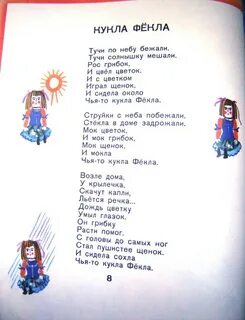 КУКЛА ФЁКЛА
Тучи по небу бежали,
Тучи солнышку мешали.
Рос грибок,
И цвёл цветок.
И с цветком
Играл щенок,
И сидела около
Чья-то кукла Фёкла.
Струйки с неба побежали,
Стёкла в доме задрожали.
Мок цветок,
И мок грибок,
Мок щенок,
И мокла
Чья-то кукла Фёкла.
Возле дома,
У крылечка,
Скачут капли,
Льётся речка...
Дождь цветку
Умыл глазок,
Он грибку
Расти помог.
С головы до самых ног
Стал пушистее щенок.
И сидела сохла
Чья-то кукла Фёкла.
8